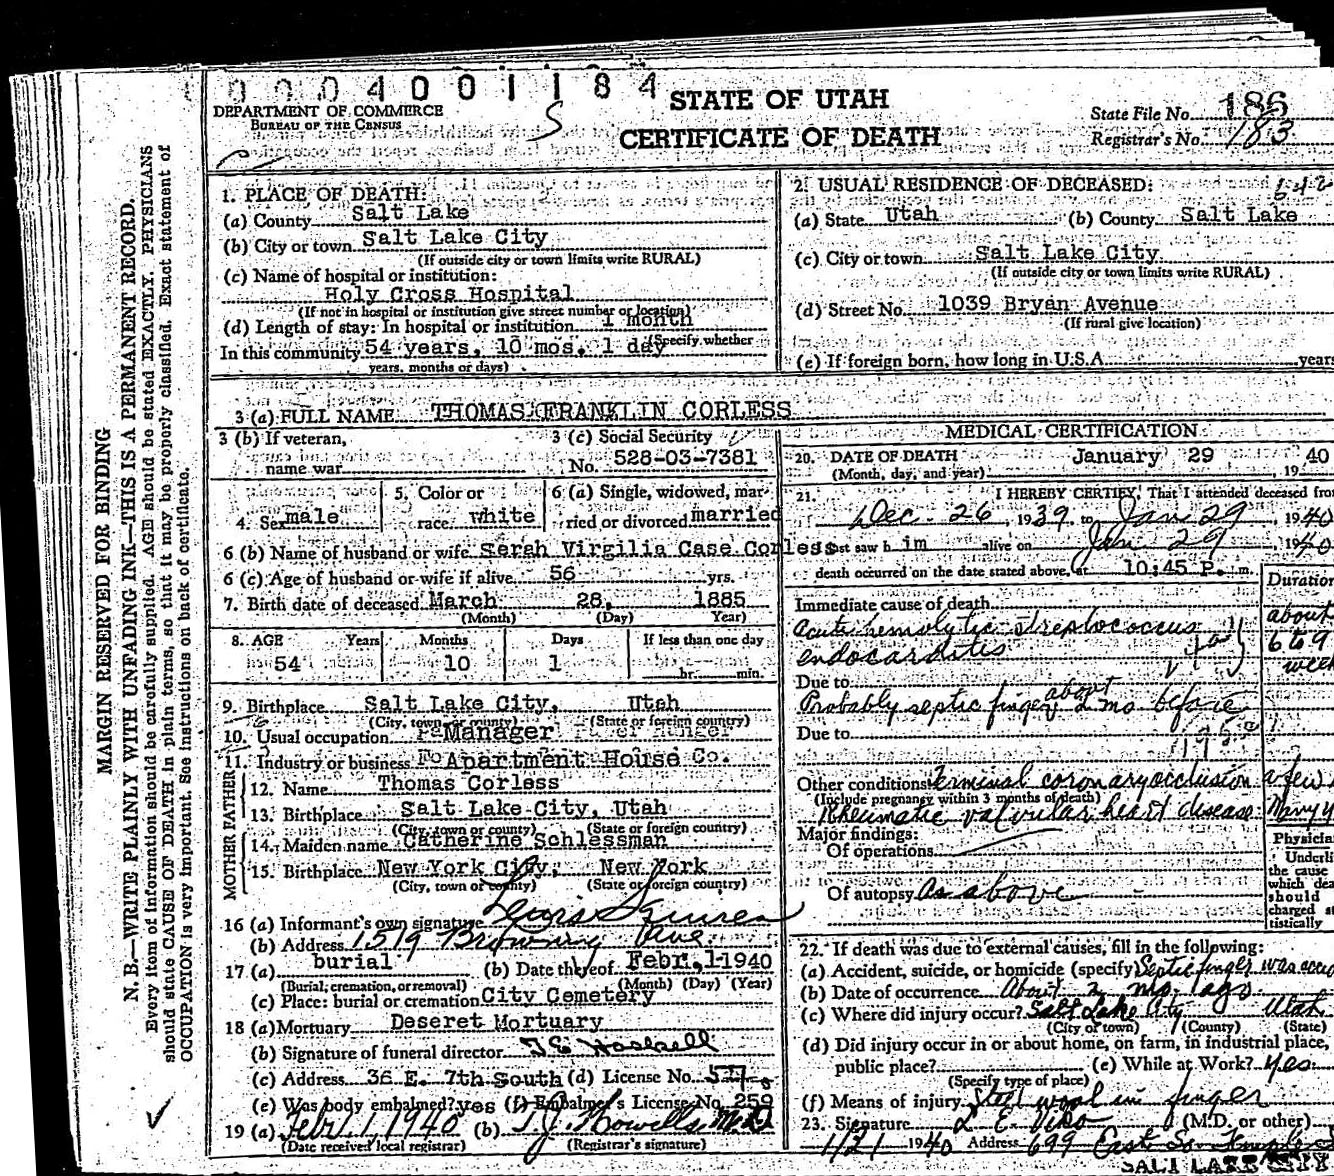 0004001184
STATE OF UTAH
CERTIFICATE OF DEATH
DEPARTMENT OF COMMERCE
BUREAU OF THE CENSUS
S
State File No. 186
Registrar's No. 183
MARGIN RESERVED FOR BINDING
N. B.—WRITE PLAINLY WITH UNFADING INK—THIS IS A PERMANENT RECORD.
Every item of information should be carefully supplied. AGE should be stated EXACTLY. PHYSICIANS
should state CAUSE OF DEATH in plain terms, so that it may be properly classified. Exact statement of
OCCUPATION is very important. See instructions on back of certificate.
1. PLACE OF DEATH:
(a) County Salt Lake
(b) City or town Salt Lake City
(If outside city or town limits write RURAL)
(c) Name of hospital or institution:
Holy Cross Hospital
(If not in hospital or institution give street number or location)
(d) Length of stay: In hospital or institution 1 month
(Specify whether
In this community 54 years, 10 mos, 1 day
years, months or days)
2. USUAL RESIDENCE OF DECEASED:
(a) State Utah (b) County Salt Lake
(c) City or town Salt Lake City
(If outside city or town limits write RURAL)
(d) Street No. 1039 Bryan Avenue
(If rural give location)
(e) If foreign born, how long in U.S.A. years
3 (a) FULL NAME THOMAS FRANKLIN CORLESS
3 (b) If veteran,
name war
3 (c) Social Security
No. 528-03-7381
4. Sex male
5. Color or
race white
6 (a) Single, widowed, mar-
ried or divorced married
6 (b) Name of husband or wife Serah Virgilia Case Corless
6 (c) Age of husband or wife if alive 56 yrs.
7. Birth date of deceased March 28, 1885
(Month) (Day) Year)
8. AGE Years Months Days If less than one day
54 10 1 hr. min.
9. Birthplace Salt Lake City, Utah
(City, town or county) (State or foreign country)
10. Usual occupation Manager
11. Industry or business Apartment House Co.
FATHER
12. Name Thomas Corless
13. Birthplace Salt Lake City, Utah
(City, town or county) (State or foreign country)
MOTHER
14. Maiden name Catherine Schlessman
15. Birthplace New York City, New York
(City, town or county) (State or foreign country)
16 (a) Informant's own signature Lewis Squires
(b) Address 1519 Browning Ave.
17 (a) burial (b) Date thereof Febr. 1-1940
(Burial, cremation, or removal) (Month) (Day) (Year)
(c) Place: burial or cremation City Cemetery
18 (a) Mortuary Deseret Mortuary
(b) Signature of funeral director
(c) Address 36 E. 7th South (d) License No.
(e) Was body embalmed? yes (f) Embalmer's License No. 259
19 (a) Feb. 1 1940 (b) T.J. Howells M.D.
(Date received local registrar) (Registrar's signature)
MEDICAL CERTIFICATION
20. DATE OF DEATH January 29 1940
(Month, day, and year)
21. I HEREBY CERTIFY, That I attended deceased from
Dec. 26, 1939, to Jan 29, 1940
last saw him alive on Jan 29, 1940
death occurred on the date stated above, at 10:45 P. m.
Duration
Immediate cause of death
Acute hemolytic streptococcus about
endocarditis 6 to 9
week
Due to
Probably septic finger about 2 mo before
Due to
Other conditions Terminal coronary occlusion a few
(Include pregnancy within 3 months of death)
Rheumatic valvular heart disease Many y
Major findings:
Of operations
Of autopsy As above
Physician
Underli
the cause
which dea
should
charged st
tistically
22. If death was due to external causes, fill in the following:
(a) Accident, suicide, or homicide (specify) Septic finger was acci
(b) Date of occurrence About 2 mo. ago
(c) Where did injury occur? Salt Lake City Utah
(City or town) (County) (State)
(d) Did injury occur in or about home, on farm, in industrial place,
public place? (e) While at Work? Yes
(Specify type of place)
(f) Means of injury Steel wool in finger
23. Signature L. E. Viko (M.D. or other)
1940 Address 699 East So. Temple
SALT LAKE